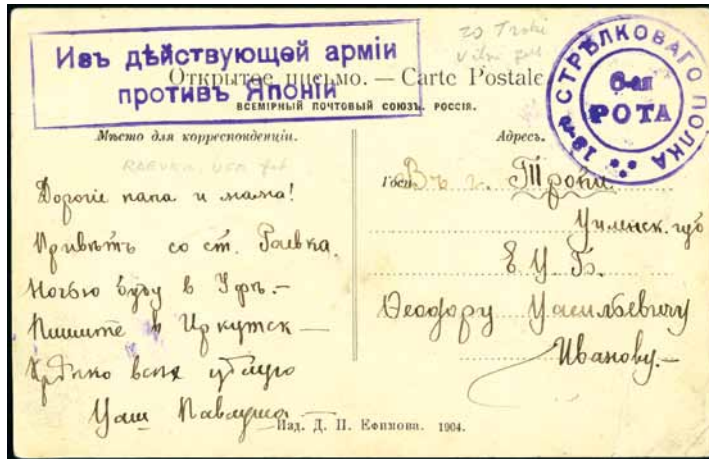 Изъ дѣйствующей арміи
противъ Японіи
Открытое письмо. — Carte Postale
ВСЕМІРНЫЙ ПОЧТОВЫЙ СОЮЗЪ. РОССІЯ.
СТРѢЛКОВАГО ПОЛКА
6-ая
РОТА
Мѣсто для корреспонденціи.
Адресъ.
Дорогіе папа и мама!
Привѣтъ со ст. Раевка.
Ночью буду в Уфѣ.—
Пишите в Иркутск —
Крѣпко всѣх цѣлую
Ваш Павлуша
Въ г. Троки.
Виленск. губ
Е. В. Б.
Ѳеодору Васильевичу
Иванову.—
Изд. Д. П. Ефимова. 1904.